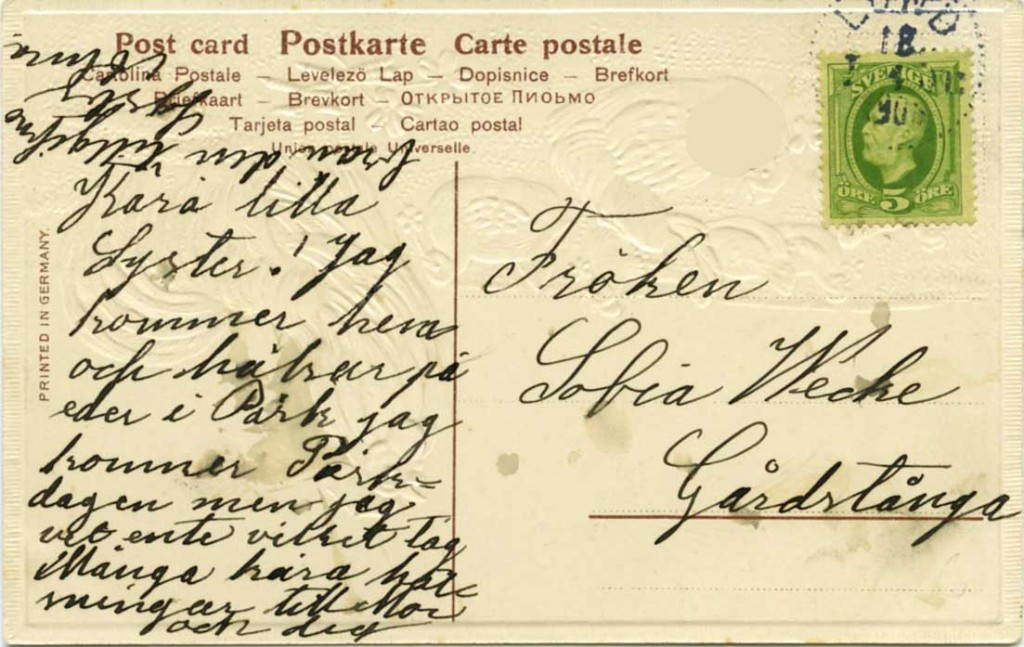 Post card Postkarte Carte postale
Cartolina Postale – Levelező Lap – Dopisnice – Brefkort
Briefkaart – Brevkort – ОТКРЫТОЕ ПИСЬМО
Tarjeta postal – Cartao postal
Union postale Universelle
PRINTED IN GERMANY.
Kära lilla
Syster! Jag
kommer hem
och hälsar på
eder i Påsk jag
kommer Påsk-
dagen men jag
vet ente vilket Tåg
Många kära häl-
ningar till Mor
och dig
från den tillgifne
Syster
SVERIGE
ÖRE 5 ÖRE
18
Fröken
Sofia Wecke
Gårdstånga